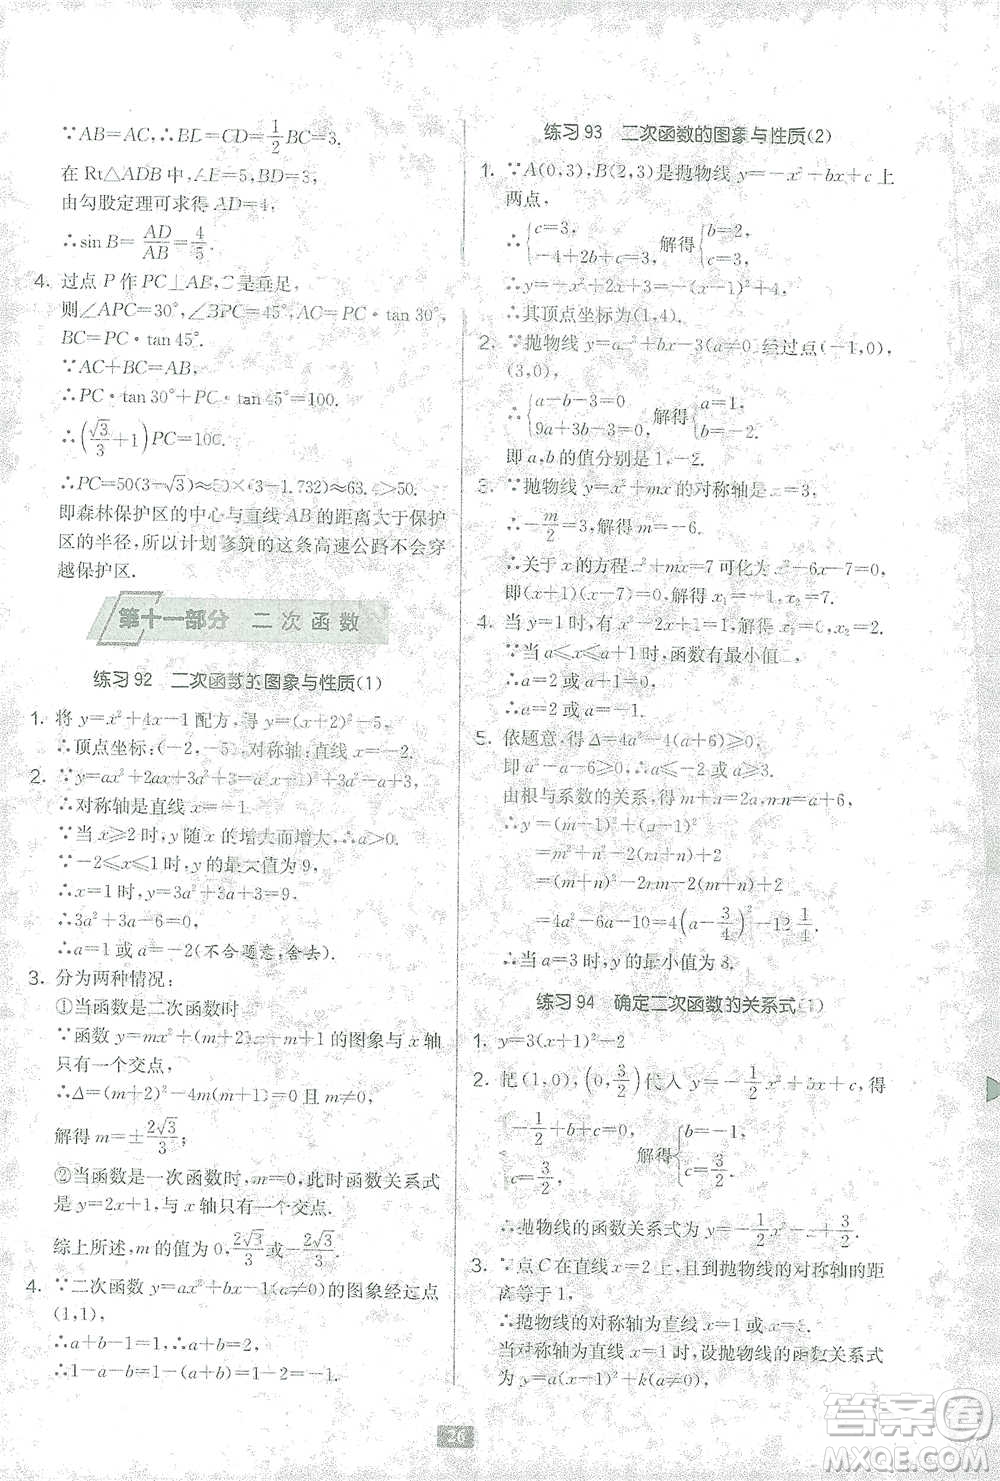 ∵AB=AC,∴BD=CD=1/2BC=3.
在 Rt△ADB 中,AB=5,BD=3,
由勾股定理可求得 AD=4,
∴sin B=AD/AB=4/5.
4. 过点 P 作 PC⊥AB,C 是垂足,
则∠APC=30°,∠BPC=45°,AC=PC·tan 30°,
BC=PC·tan 45°.
∵AC+BC=AB,
∴PC·tan 30°+PC·tan 45°=100.
∴(√3/3+1)PC=100.
∴PC=50(3-√3)≈50×(3-1.732)≈63.4>50.
即森林保护区的中心与直线 AB 的距离大于保护
区的半径,所以计划修筑的这条高速公路不会穿
越保护区.
第十一部分 二次函数
练习 92 二次函数的图象与性质(1)
1. 将 y=x²+4x-1 配方,得 y=(x+2)²-5,
∴顶点坐标:(-2,-5),对称轴:直线 x=-2.
2. ∵y=ax²+2ax+3a²+3=a(x+1)²+3a²-a+3,
∴对称轴是直线 x=-1.
∵当 x≥2 时,y 随 x 的增大而增大,∴a>0.
∵-2≤x≤1 时,y 的最大值为 9,
∴x=1 时,y=3a²+3a+3=9.
∴3a²+3a-6=0.
∴a=1 或 a=-2(不合题意,舍去).
3. 分为两种情况:
①当函数是二次函数时,
∵函数 y=mx²+(m+2)x+m+1 的图象与 x 轴
只有一个交点,
∴Δ=(m+2)²-4m(m+1)=0 且 m≠0,
解得 m=±2√3/3;
②当函数是一次函数时,m=0,此时函数关系式
是 y=2x+1,与 x 轴只有一个交点.
综上所述,m 的值为 0,2√3/3或-2√3/3.
4. ∵二次函数 y=ax²+bx-1(a≠0)的图象经过点
(1,1),
∴a+b-1=1,∴a+b=2,
∴1-a-b=1-(a+b)=1-2=-1.
练习 93 二次函数的图象与性质(2)
1. ∵A(0,3),B(2,3)是抛物线 y=-x²+bx+c 上
两点,
∴{c=3, -4+2b+c=3, 解得{b=2, c=3,
∴y=-x²+2x+3=-(x-1)²+4,
∴其顶点坐标为(1,4).
2. ∵抛物线 y=ax²+bx-3(a≠0)经过点(-1,0),
(3,0),
∴{a-b-3=0, 9a+3b-3=0, 解得{a=1, b=-2.
即 a,b 的值分别是 1,-2.
3. ∵抛物线 y=x²+mx 的对称轴是 x=3,
∴-m/2=3,解得 m=-6.
∴关于 x 的方程 x²+mx=7 可化为 x²-6x-7=0,
即(x+1)(x-7)=0,解得 x₁=-1,x₂=7.
4. 当 y=1 时,有 x²-2x+1=1,解得 x₁=0,x₂=2.
∵当 a≤x≤a+1 时,函数有最小值 1,
∴a=2 或 a+1=0,
∴a=2 或 a=-1.
5. 依题意,得 Δ=4a²-4(a+6)≥0,
即 a²-a-6≥0,∴a≤-2 或 a≥3.
由根与系数的关系,得 m+n=2a,mn=a+6,
∴y=(m-1)²+(n-1)²
=m²+n²-2(m+n)+2
=(m+n)²-2mn-2(m+n)+2
=4a²-6a-10=4(a-3/4)²-12 1/4.
∴当 a=3 时,y最小=8.
练习 94 确定二次函数的关系式(1)
1. y=3(x+1)²-2
2. 把(1,0),(0,3/2)代入 y=-1/2x²+bx+c,得
{-1/2+b+c=0, c=3/2, 解得{b=-1, c=3/2,
∴抛物线的函数关系式为 y=-1/2x²-x+3/2.
3. ∵点 C 在直线 x=2 上,且到抛物线的对称轴的距
离等于 1,
∴抛物线的对称轴为直线 x=1 或 x=3.
当对称轴为直线 x=1 时,设抛物线的函数关系式
为 y=a₁(x-1)²+k₁,
26
答案圈
MXQE.COM